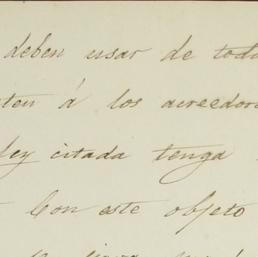 deben usar de todo
sten á los acreedor
ley citada tenga
Con este objeto